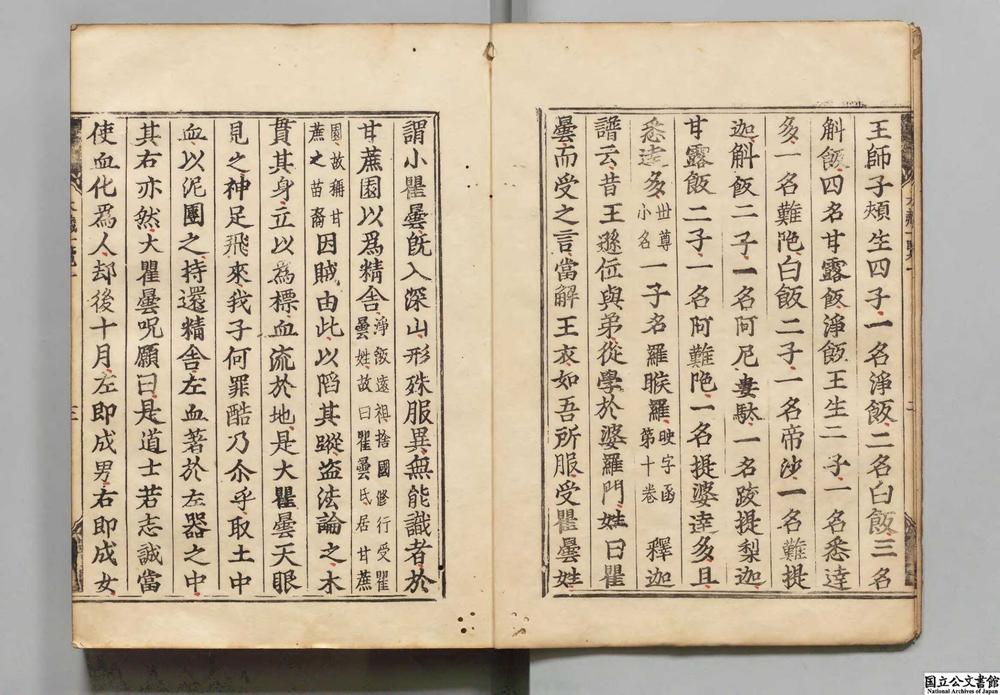 王師子頰生四子一名淨飯二名白飯三名
斛飯四名甘露飯淨飯王生二子一名悉達
多一名難陁白飯二子一名帝沙一名難提
迦斛飯二子一名阿尼婁馱一名跋提梨迦
甘露飯二子一名阿難陁一名提婆達多且
悉達多世尊小名一子名羅睺羅映字函第十卷釋迦
譜云昔王遜位與弟從學於婆羅門姓曰瞿
曇而受之言當解王衣如吾所服受瞿曇姓
謂小瞿曇旣入深山形殊服異無能識者於
甘蔗園以爲精舍淨飯遠祖捨國修行受瞿曇姓故曰瞿曇氏居甘蔗
園故稱甘蔗之苗裔因賊由此以陷其蹤盗法論之木
貫其身立以爲標血流於地是大瞿曇天眼
見之神足飛來我子何罪酷乃尒乎取土中
血以泥團之持還精舍左血著於左器之中
其右亦然大瞿曇呪願曰是道士若志誠當
使血化爲人却後十月左即成男右即成女
國立公文書館
National Archives of Japan